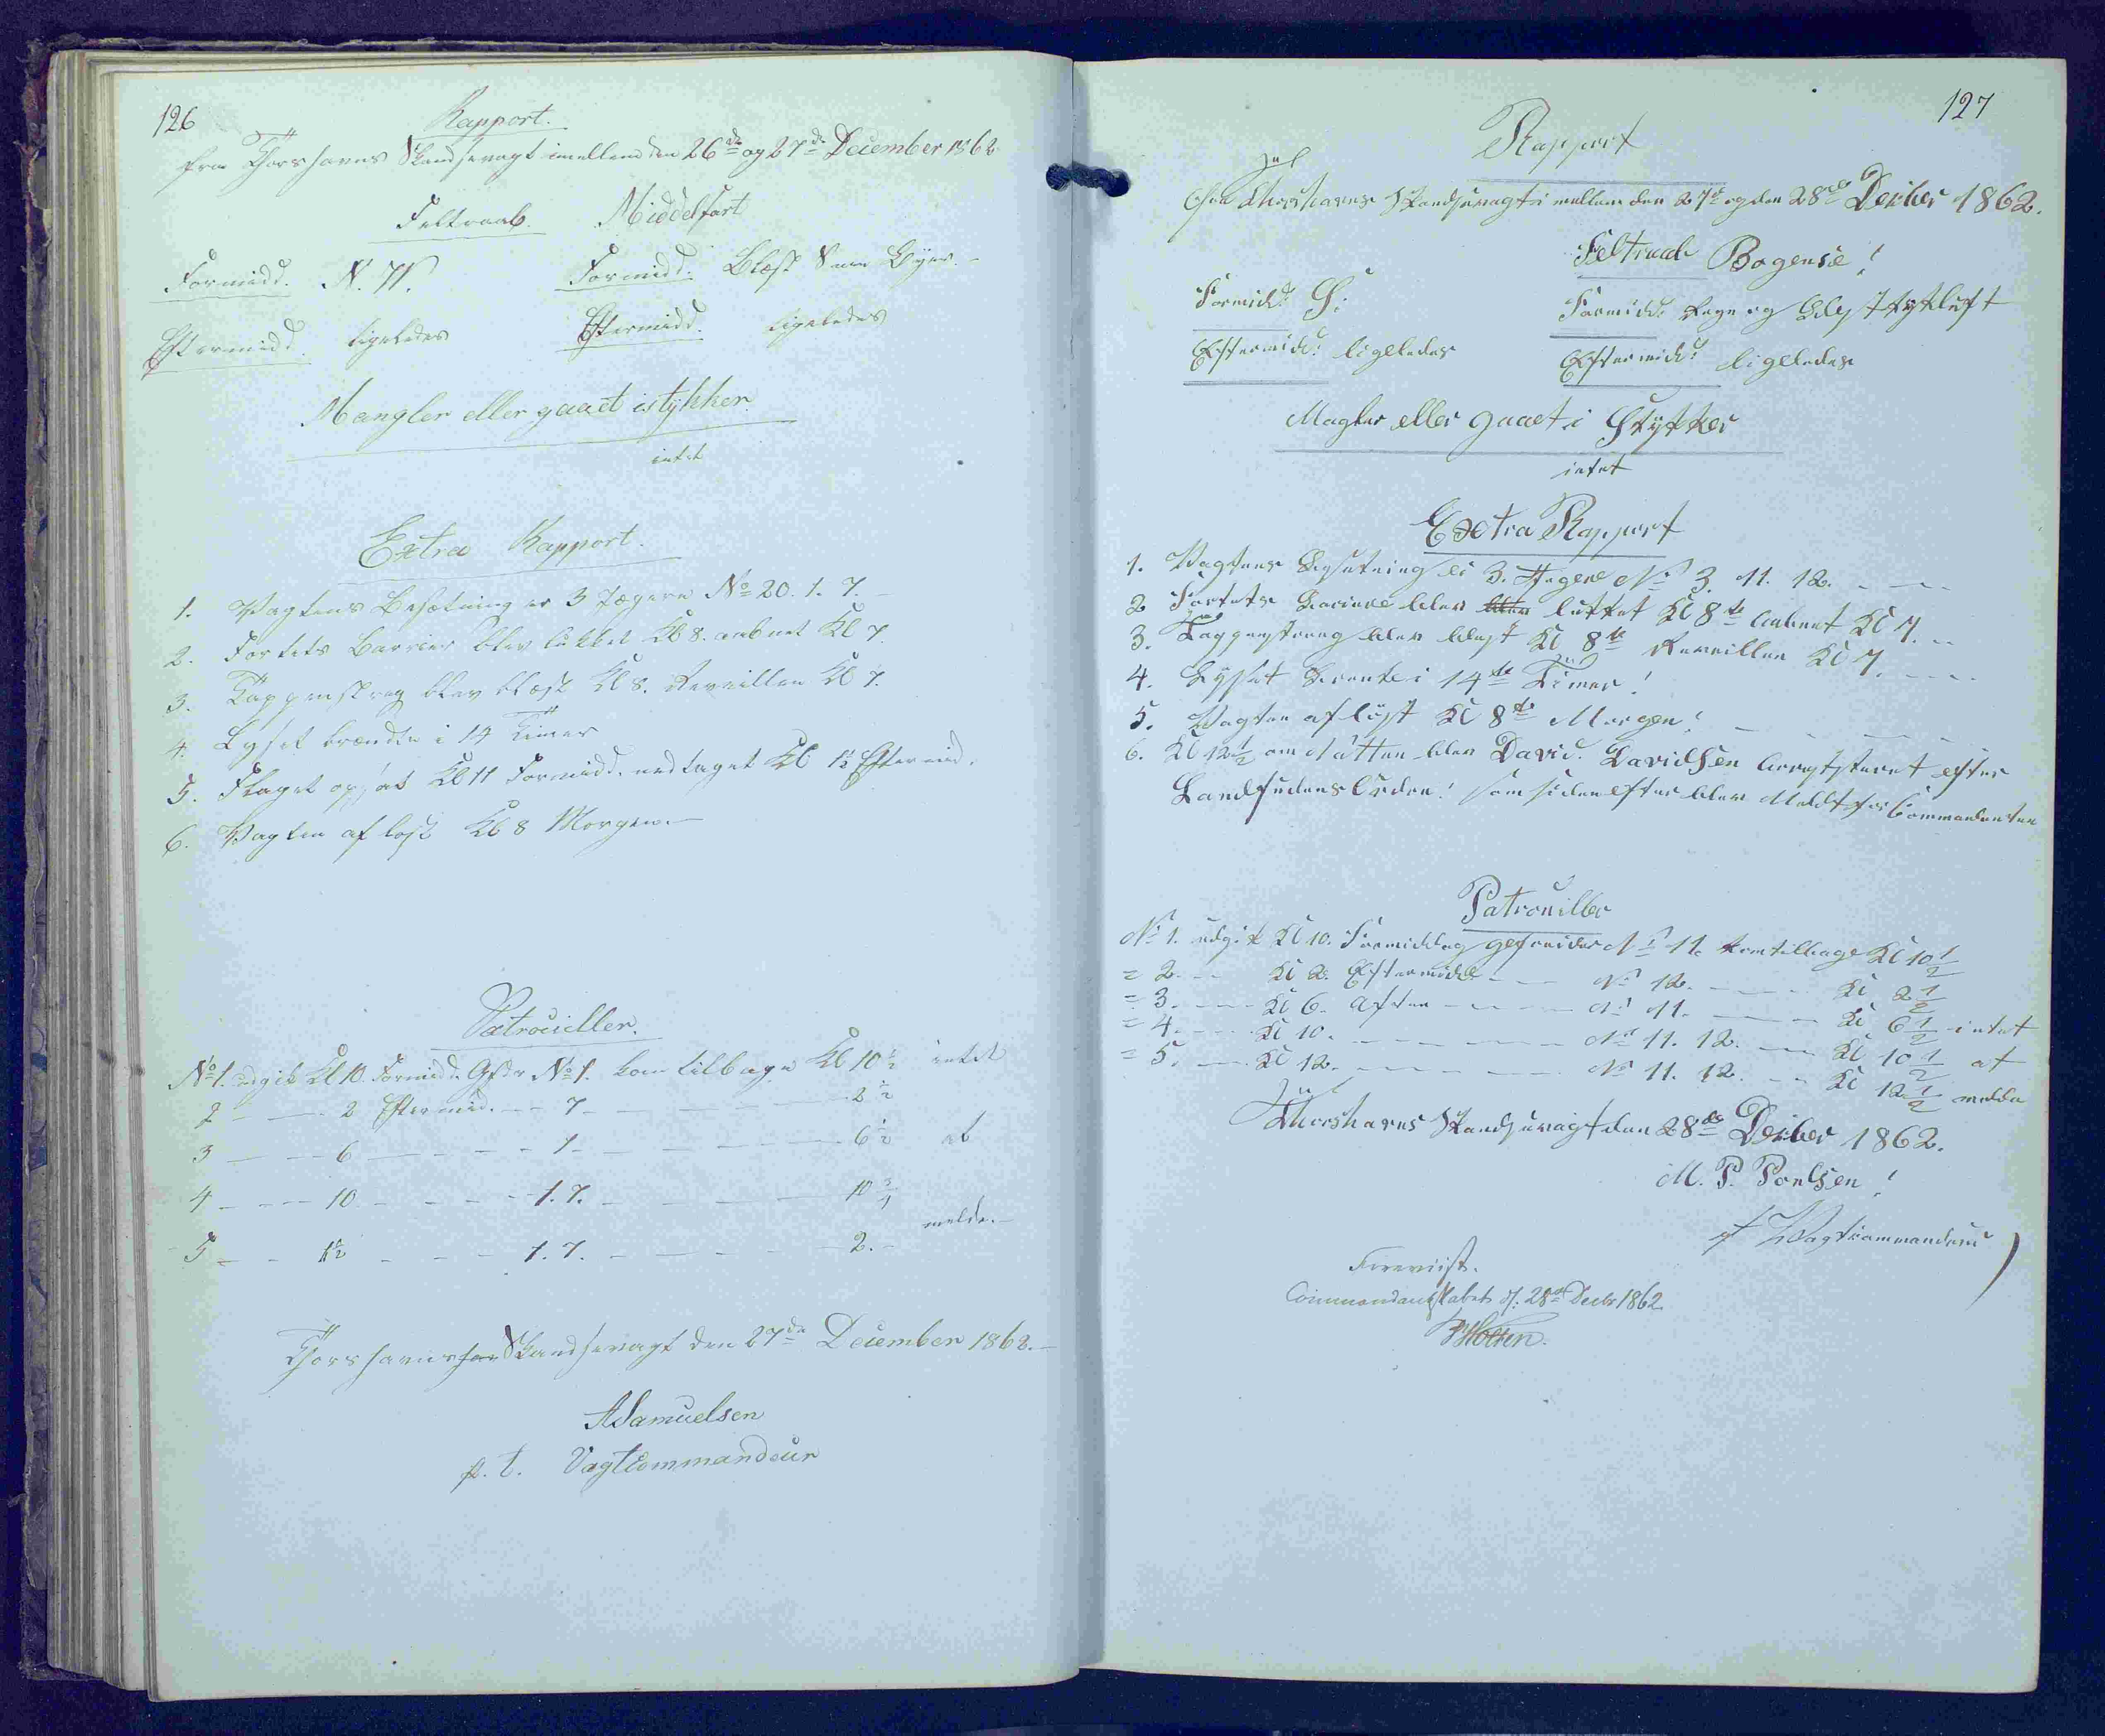 126
Rapport.
fra Thorshavns Skandsevagt imellem den 26de og 27de December 1862.
Feltraab. Middelfart
Formidd. N.W. Formidd. Blæst Snee Byer. -
Eftermidd. ligeledes Eftermidd. ligeledes
Mangler eller gaaet istykker.
intet
Extra Rapport.
1. Vagtens Besætning er 3 Jægere No 20. 1. 7. -
2. Fortets Barrier blev lukket Kl 8. aabnet Kl 7.
3. Tappenstreg blev blæst Kl 8. Reveillen Kl 7.
4. Lyset brændte i 14 Timer
5. Flaget opsat Kl 11 Formidd. nedtaget Kl 1½ Eftermid.
6. Vagten afløst Kl 8 Morgen. -
Patrouiller.
No 1. udgik Kl 10. Formidd. Gefr No 1. kom tilbage Kl 10½ intet
2 - - - 2 Eftermid. - - 7 - - - - 2½
3 - - - 6 - - - - 1 - - - - 6½ at
4 - - - 10 - - - - 1. 7. - - - - 10½
melde. -
5 - - 12 - - - 1. 7. - - - - 2. -
Thorshavns Skandsevagt den 27de December 1862. -
A Samuelsen
p. t. Vagtcommandeur
127
Rapport
fra Thorshavns Skandsevagt i mellem den 27de og den 28de Decber 1862.
Feltraab Bogense!
Formidd: S: Formidd: Regn og Tykluft
Eftermidd: ligeledes Eftermidd: ligeledes
Magler eller gaaet i Stykker
intet
Extra Rapport
1. Vagtens Besætning er 3. Jægere No 3. 11. 12. - - -
2 Fortets Bariere blev blev lukket Kl 8te aabnet Kl 7. - -
3. Tappenstreng blev blæst Kl 8te Reveillen Kl 7. - - -
4. Lyset Brente i 14te Timer!
5. Vagten afløst Kl 8te Morgen! - - - -
6. Kl 12½ om Natten blev David. Davidsen Arrystteret efter
Landfudens Orden! som siden efter blev Meldt for Commandanten
Patrouiller
No 1. udgik Kl 10. Formiddag gefreider No 11. kom tilbage Kl 10½
= 2. - - Kl 2. Eftermidd - - - No 12. - - - Kl 2½
= 3. - - - Kl 6. Aften - - - - No 11. - - - Kl 6½ intet
= 4. - - - Kl 10. - - - - - No 11. 12. - - Kl 10½ at
= 5. - - - Kl 12. - - - - - No 11. 12. - - Kl 12½ melde
Thorshavns Skandsevagt den 28de Decber 1862.
M. P. Poulsen!
Vagtcommandeur
Foreviist.
Commandantskabet d: 28de Decbr 1862.
Holten.